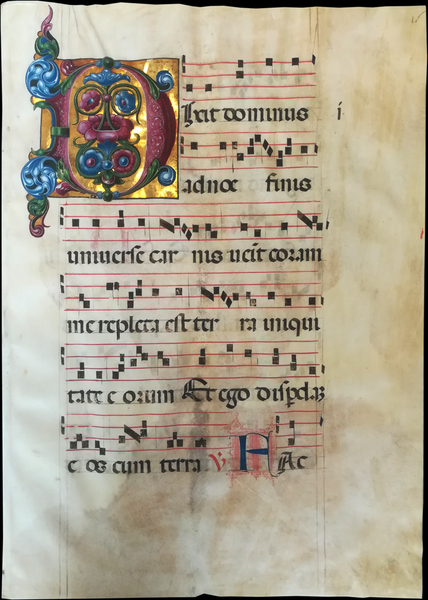 Dixit dominus i
ad noe finis
universe car nis venit coram
me repleta est ter ra iniqui
tate e orum Et ego disꝑdaꝫ
e os cum terra ℣ FAc